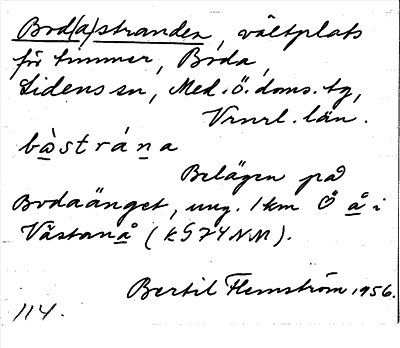 Bod(a)stranden, vältplats
för timmer, Boda,
Lidens sn, Med.ö.doms.tg,
Vrnrl.län.
bo̱̒strána̱
Belägen på
Bodaänget, ung. 1 km Ö å i
Västanå (kS74NM).
Bertil Flemström 1956.
114.